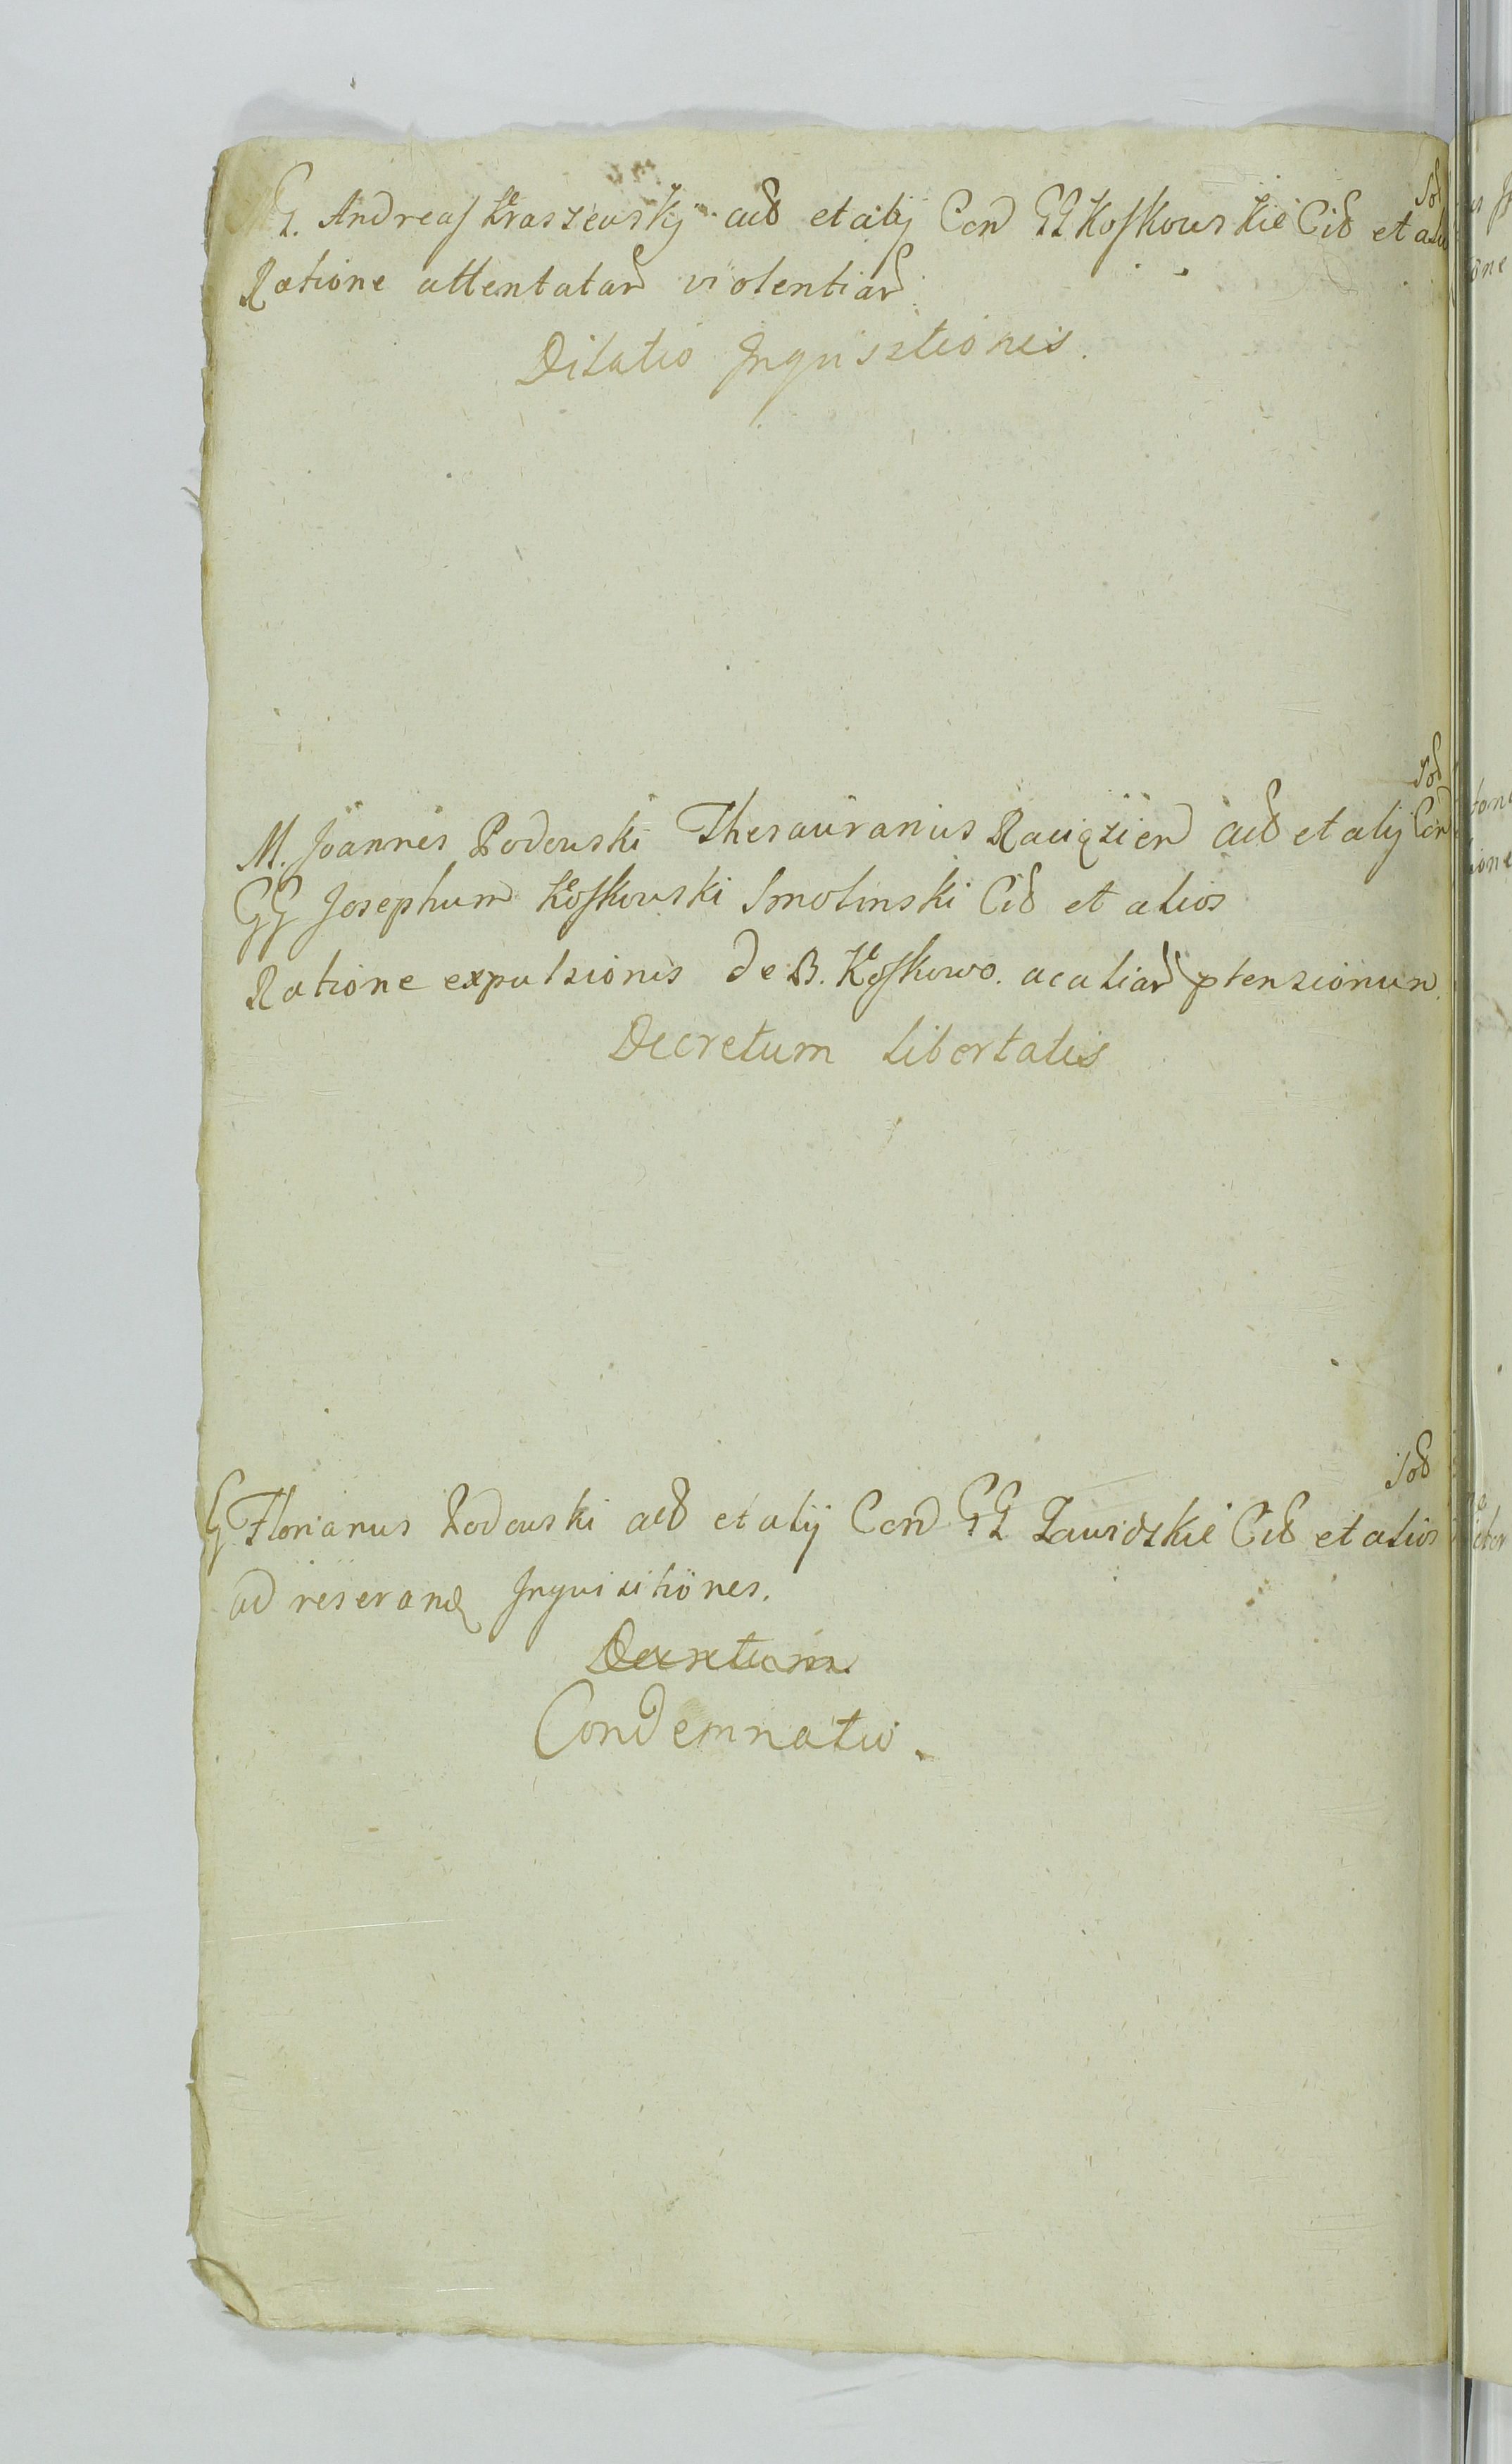 G. Andreas Kraszewsky act et alij Con GG Koskowskie Cit et alios
Ratione attentatar violentiar
Dilatio Inquisitionis.
M. Joannes Podowski Thesaurarius Rauąsien act et alij Con
GG Josephum Koskowski Smolinski Cit et alios
Ratione expulsionis de B. Koskowo. ac aliar ptensionum
Decretum libertatis
G Florianus Podowski act et alij Con GG Zawidzkie Cit et alios
ad reserand Inquisitiones.
Decretum
Condemnatio.